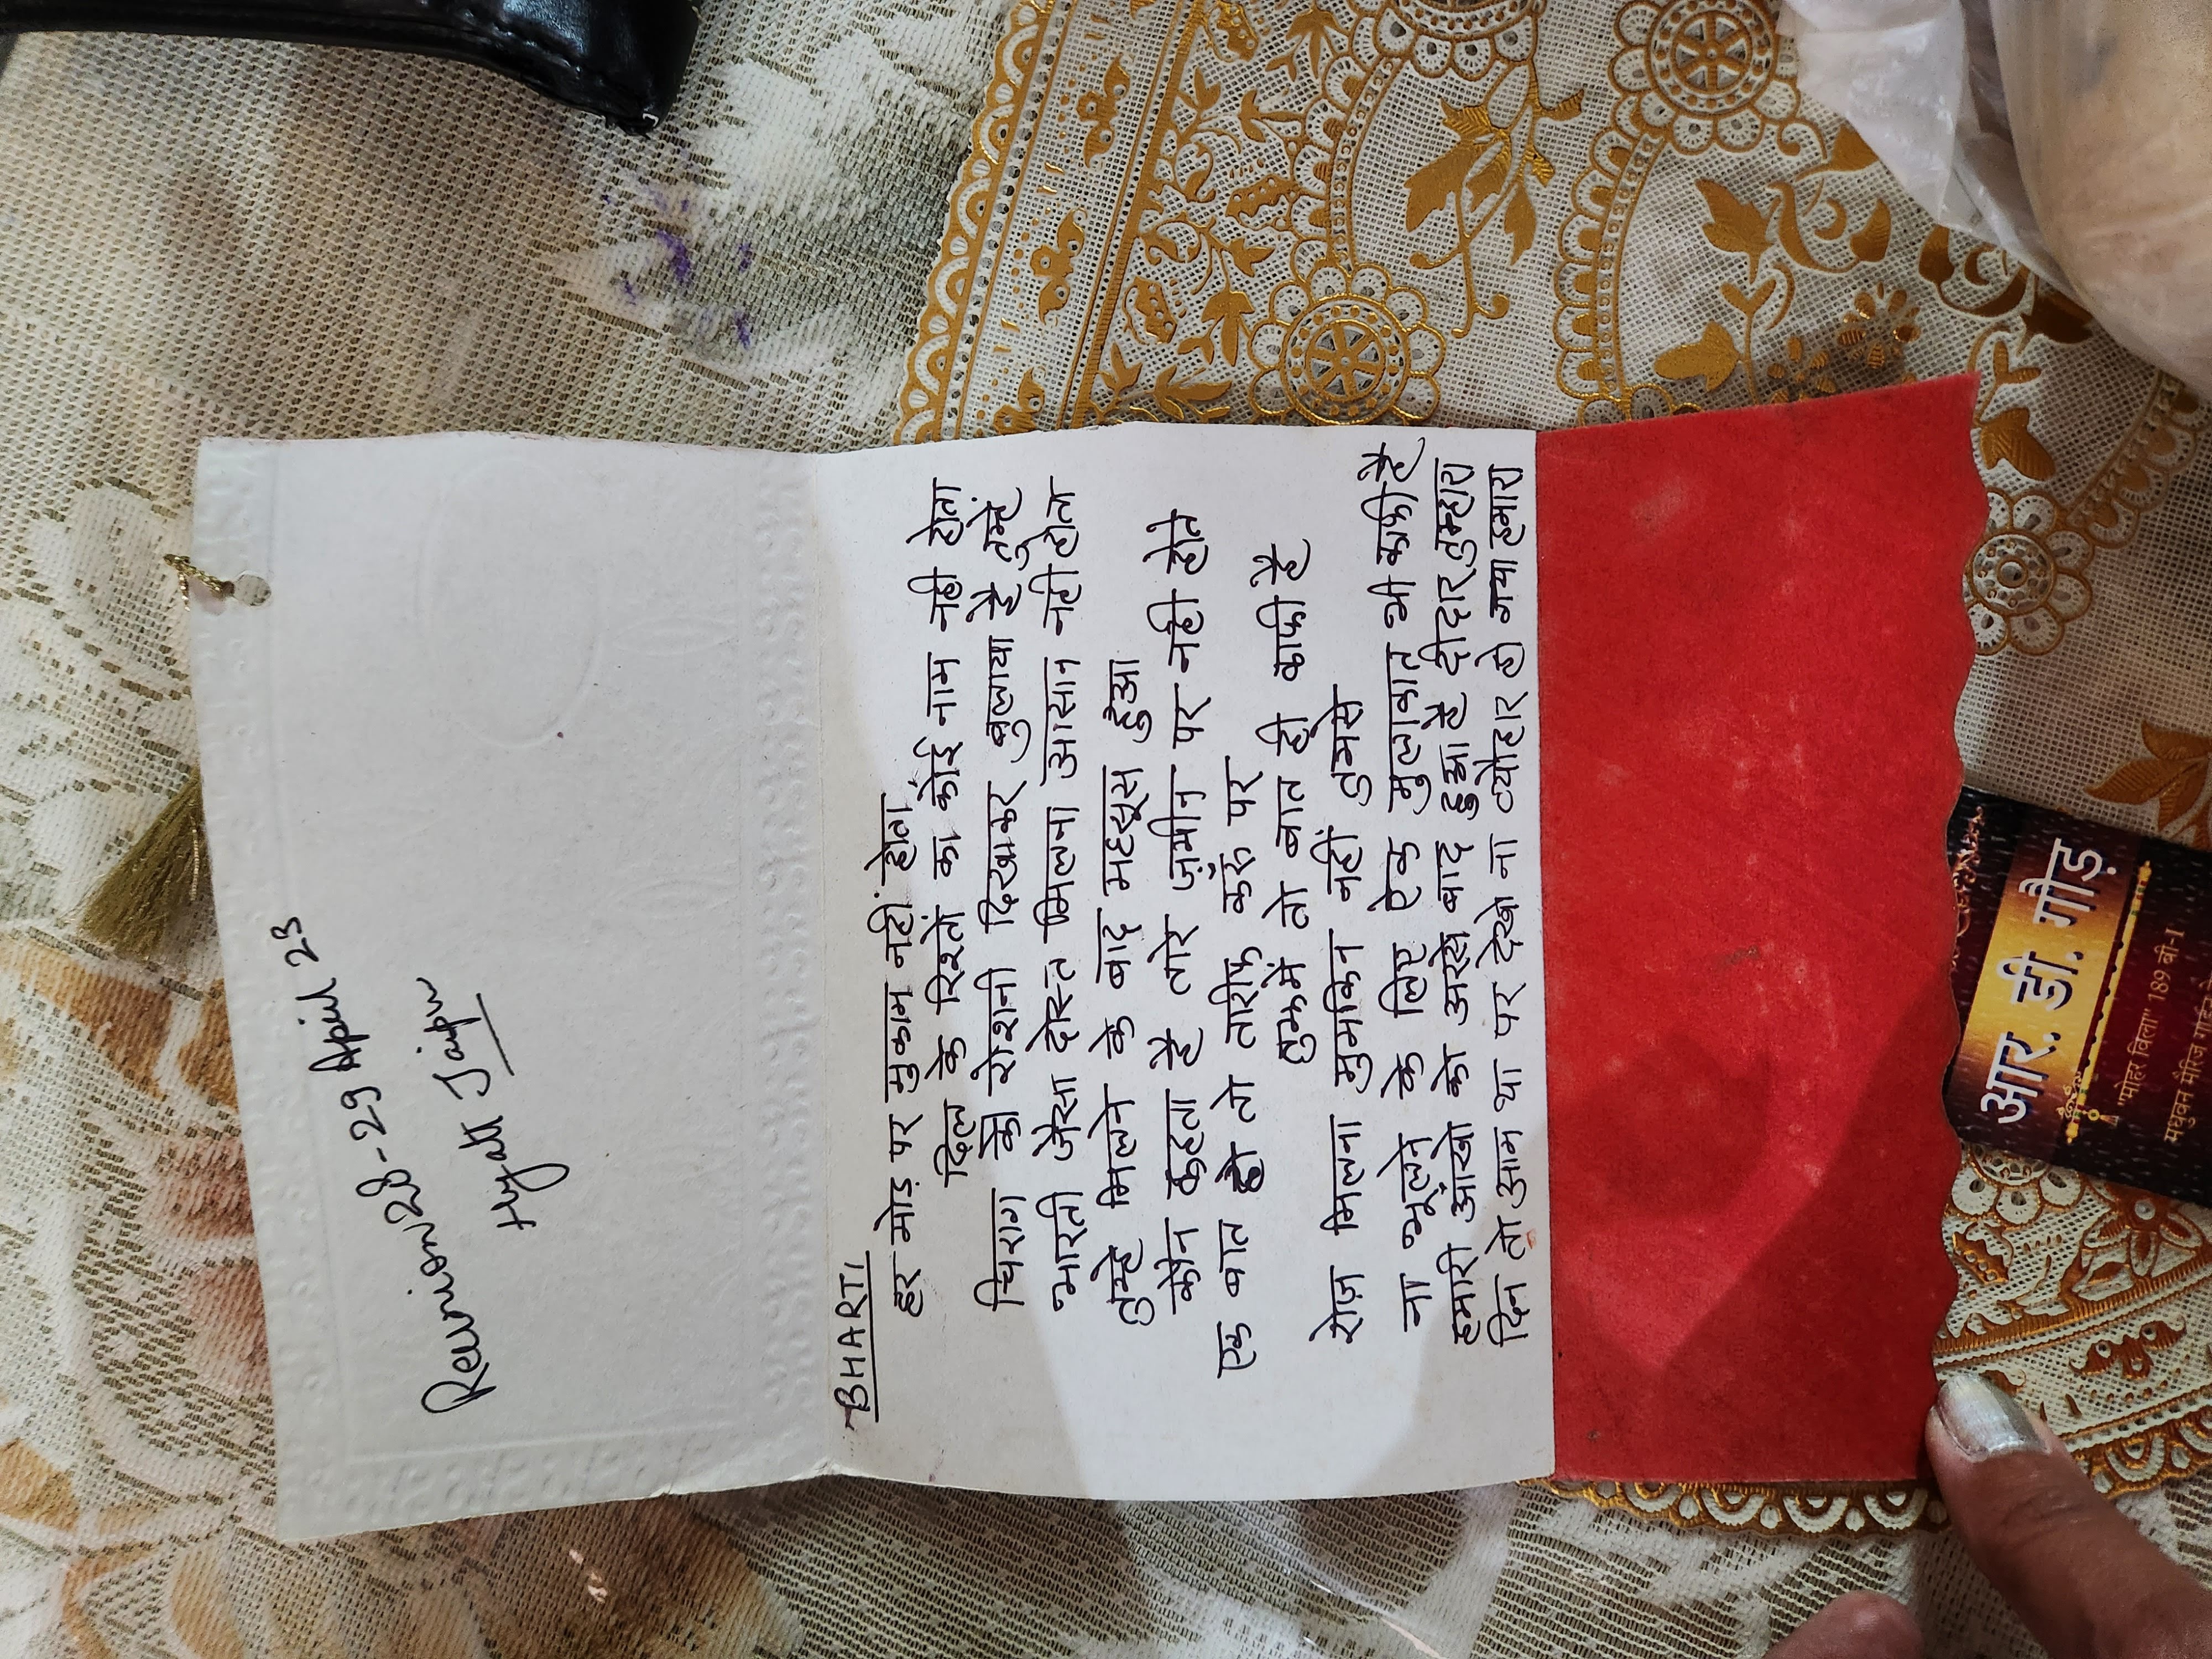 Reunion 28-29 April 23
Hyatt Jaipur
BHARTI
हर मोड़ पर मुकाम नहीं होता
दिल के रिश्तों का कोई नाम नही होता
चिराग की रोशनी दिखाकर बुलाया है तुम्हें
भारती जैसा दोस्त मिलना आसान नही होता
तुम्हे मिलने के बाद महसूस हुआ
कौन कहता है तारे ज़मीन पर नही होते
एक बात हो तो तारीफ करुँ पर
तुझमें तो बात ही काफी है
रोज़ मिलना मुमकिन नहीं तुमसे
ना भूलने के लिए ऐक मुलाकात भी काफी है
हमारी आँखो को अरसे बाद हुआ है दीदार तुम्हारा
दिन तो आम था पर देखो ना त्यौहार हो गया हमारा
आर. डी. गौड़
"मोहर विला" 189 बी-I
मधुवन मैरिज गार्डन के